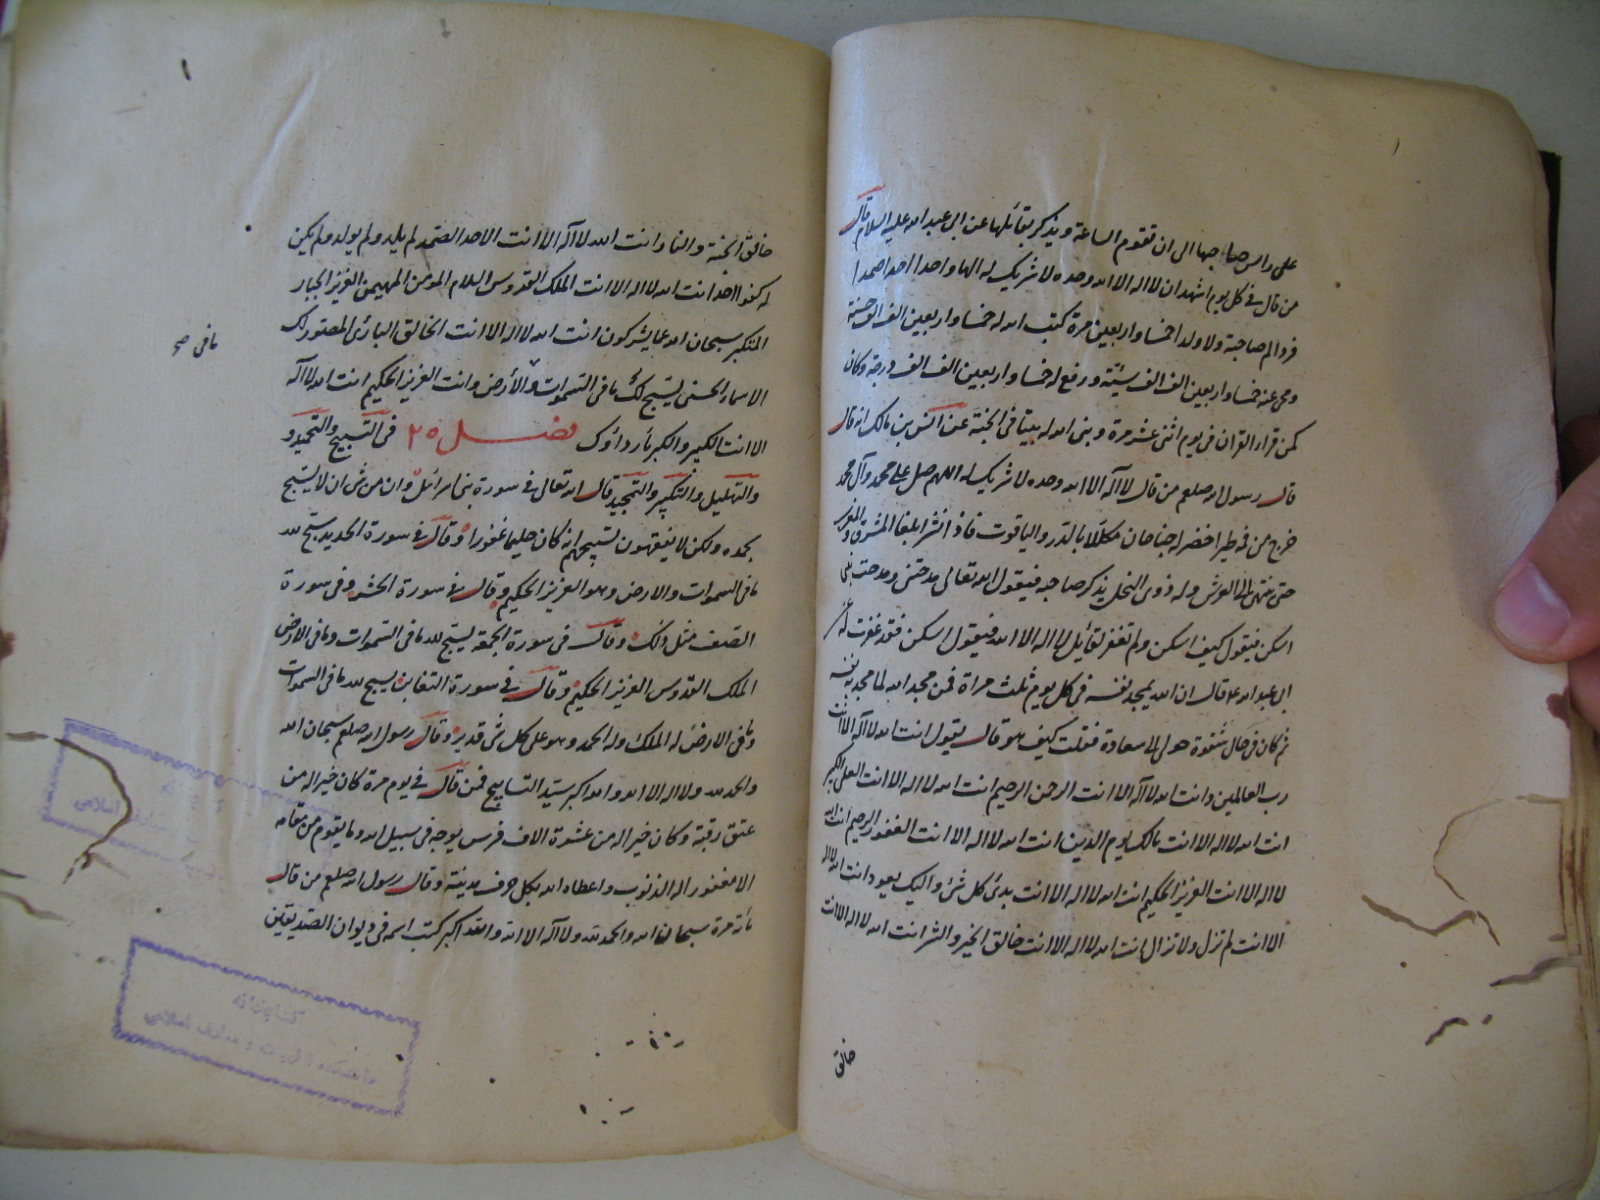 على راس صاحبها الى ان تقوم الساعة ويذكر بقائلها عن ابى عبد الله عليه السلام قال
من قال فى كل يوم اشهد ان لا اله الا الله وحده لا شريك له الها واحدا احدا صمدا
فردا لم صاحبة ولا ولدا خمسا واربعين مرة كتب الله له خمسا واربعين الف الف حسنة
ومحى عنه خمسا واربعين الف الف سيئة ورفع له خمسا واربعين الف الف درجة وكان
كمن قراء القران فى يوم اثنى عشر مرة وبنى الله له بيتا فى الجنة عن انس بن مالك انه قال
قال رسول الله صلعم من قال لا اله الا الله وحده لا شريك له اللهم صل على محمد وآل محمد
خرج من فيه طيرا خضر له جناحان مكللا بالدر والياقوت فاذ انشرا بلغا المشرق والمغرب
حتى ينتهى الى العرش وله ذوى النحل يذكر صاحبه فيقول الله تعالى مدحتنى ومدحت نبى
اسكن فيقول كيف اسكن ولم تغفر لقائل لا اله الا الله فيقول اسكن فقد غفرت له عن
ابى عبد الله ع قال ان الله يمجد نفسه فى كل يوم ثلث مراة فمن مجد الله لما مجد به نفسه
ثم كان فى حال شقوة حول الى سعادة فقلت كيف هو قال يقول انت الله لا اله الا انت
رب العالمين وانت الله لا اله الا انت الرحمن الرحيم انت الله لا اله الا انت العلى الكبير
انت الله لا اله الا انت مالك يوم الدين انت الله لا اله الا انت الغفور الرحيم انت الله
لا اله الا انت العزيز الحكيم انت الله لا اله الا انت بدئ كل شئ واليك يعود انت الله لا اله
الا انت لم تزل ولا تزال انت الله لا اله الا انت خالق الخير والشر انت الله لا اله الا انت
خالق
خالق الجنة والنار انت الله لا اله الا انت الاحد الصمد لم يلد ولم يولد ولم يكن
له كفوا احد انت الله لا اله الا انت الملك القدوس السلام المؤمن المهيمن العزيز الجبار
المتكبر سبحان الله عما يشركون انت الله لا اله الا انت الخالق البارئ المصور لك
الاسماء الحسنى يسبح لك ما فى السموات والأرض وانت العزيز الحكيم انت الله لا اله
ما فى صح
الا انت الكبير والكبرياء رداؤك فصل ٢٥ فى التسبيح والتحميد و
والتهليل والتكبير والتمجيد قال الله تعالى فى سورة بنى اسرائل وان من شئ ان لا يسبح
بحمده ولكن لا يفقهون تسبيحهم انه كان حليما غفورا وقال فى سورة الحديد سبح لله
ما فى السموات والارض وهو العزيز الحكيم وقال فى سورة الحشر وفى سورة
الصف مثل ذلك وقال فى سورة الجمعة يسبح لله ما فى السموات وما فى الارض
الملك القدوس العزيز الحكيم وقال فى سورة التغابن يسبح لله ما فى السموات
وما فى الارض له الملك وله الحمد وهو على كل شئ قدير وقال رسول الله صلعم سبحان الله
والحمد لله ولا اله الا الله والله اكبر سيد التسابيح فمن قال فى يوم مرة كان خير اله من
عتق رقبة وكان خير اله من عشرة الاف فرس يوجه فى سبيل الله وما يقوم من مقامه
الا مغفورا له الذنوب واعطاه الله بكل حرف مدينة وقال رسول الله صلعم من قال
مأة مرة سبحان الله والحمد لله ولا اله الا الله والله اكبر كتب اسمه فى ديوان الصديقين